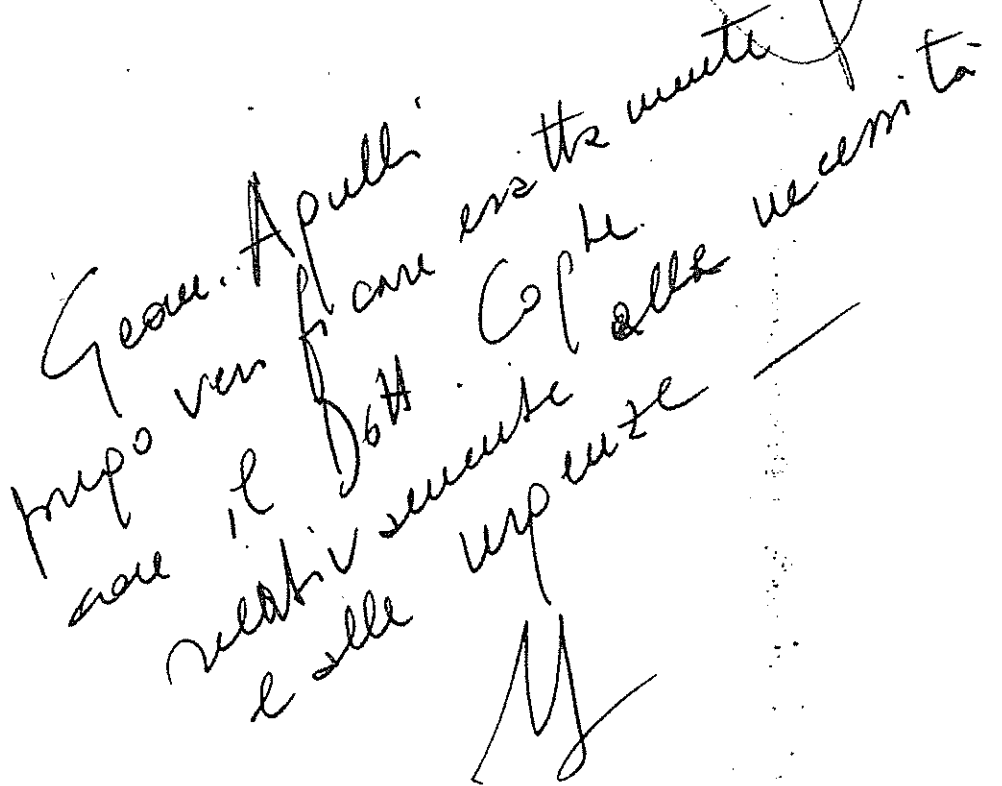 Geom. Agulli
prego verificare esattamente
con il Dott.
relativamente alla necessità
e alle urgenze —